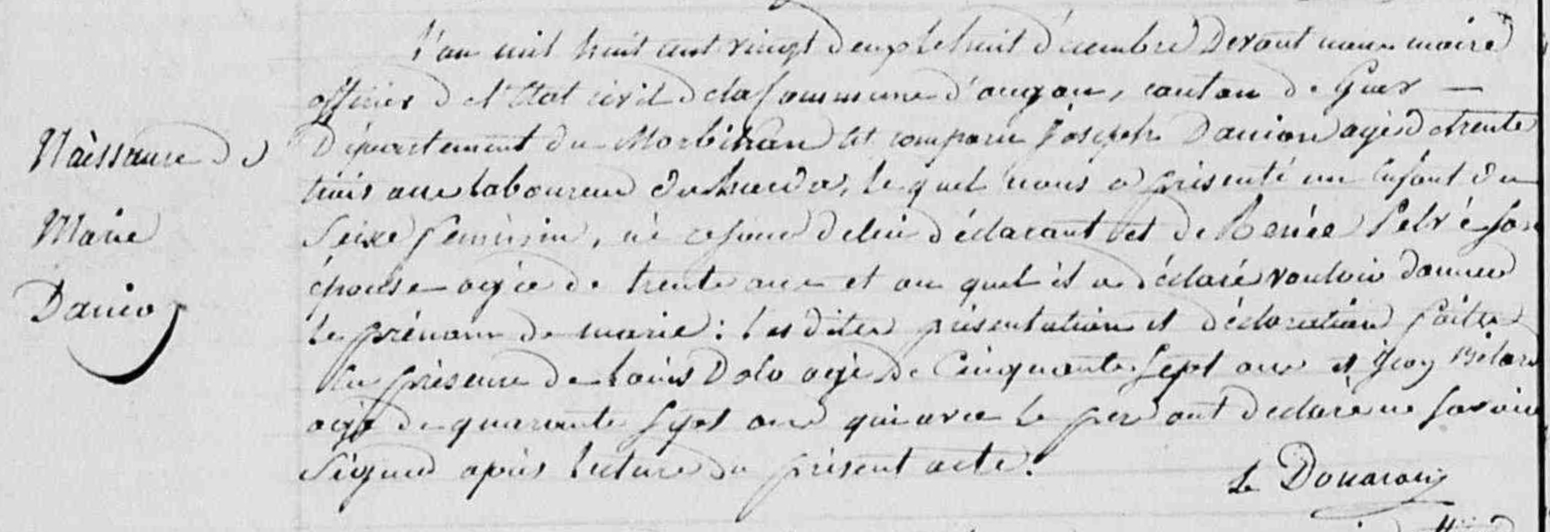 L'an mil huit cent vingt deux le huit décembre Devant nous maire
officier de l'Etat civil de la Commune d'augan, canton de Guer —
Département du Morbihan Est comparu Joseph Danion agé de trente
trois ans laboureur, le quel nous a présenté un Enfant du
Seixe feminin, né ce jour de lui déclarant et de Renée Pelvé son
épouse agée de trente ans et au quel il a déclaré vouloir donner
le prénom de marie: les dites présentation et déclaration faites
En présence de Louis Dolo agé de Cinquante Sept ans et
agé de quarante Sept ans qui avec le per ont declaré ne savoir
Signer après lecture du présent acte.
Le Douarain
Naissance de
Marie
Danion